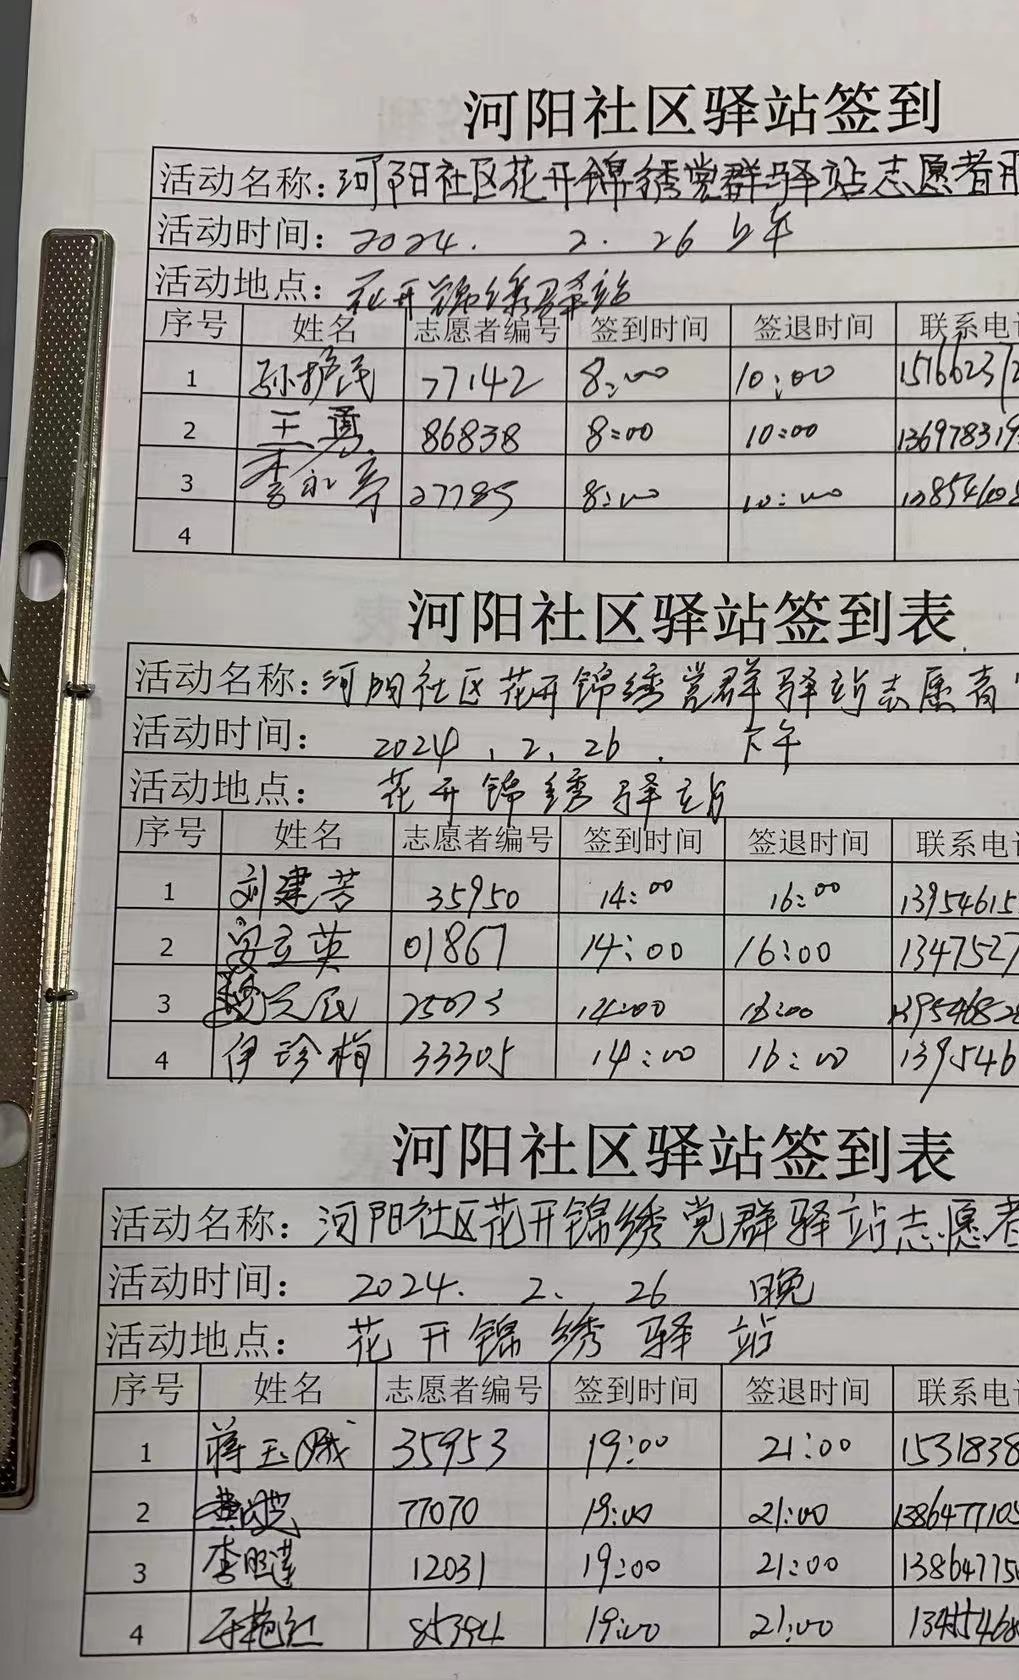 河阳社区驿站签到
活动名称：河阳社区花开锦绣党群驿站志愿者
活动时间：2024. 2. 26 上午
活动地点：花开锦绣驿站
序号 姓名 志愿者编号 签到时间 签退时间 联系电
1 孙护民 77142 8:00 10:00 15166237
2 王勇 86838 8:00 10:00 136978319
3 李永亭 27785 8:00 10:00
4
河阳社区驿站签到表
活动名称：河阳社区花开锦绣党群驿站志愿者
活动时间：2024.2.26. 下午
活动地点：花开锦绣驿站
序号 姓名 志愿者编号 签到时间 签退时间 联系电
1 刘建芳 35950 14:00 16:00 13954615
2 安立英 01867 14:00 16:00 1347527
3 25073 14:00 16:00
4 伊珍梅 33305 14:00 16:00 139546
河阳社区驿站签到表
活动名称：河阳社区花开锦绣党群驿站志愿者
活动时间：2024. 2. 26 晚
活动地点：花开锦绣驿站
序号 姓名 志愿者编号 签到时间 签退时间 联系电
1 蒋玉娥 35953 19:00 21:00 1531838
2 77070 19:00 21:00 1386477105
3 李旺莲 12031 19:00 21:00 13864775
4 于艳红 85394 19:00 21:00